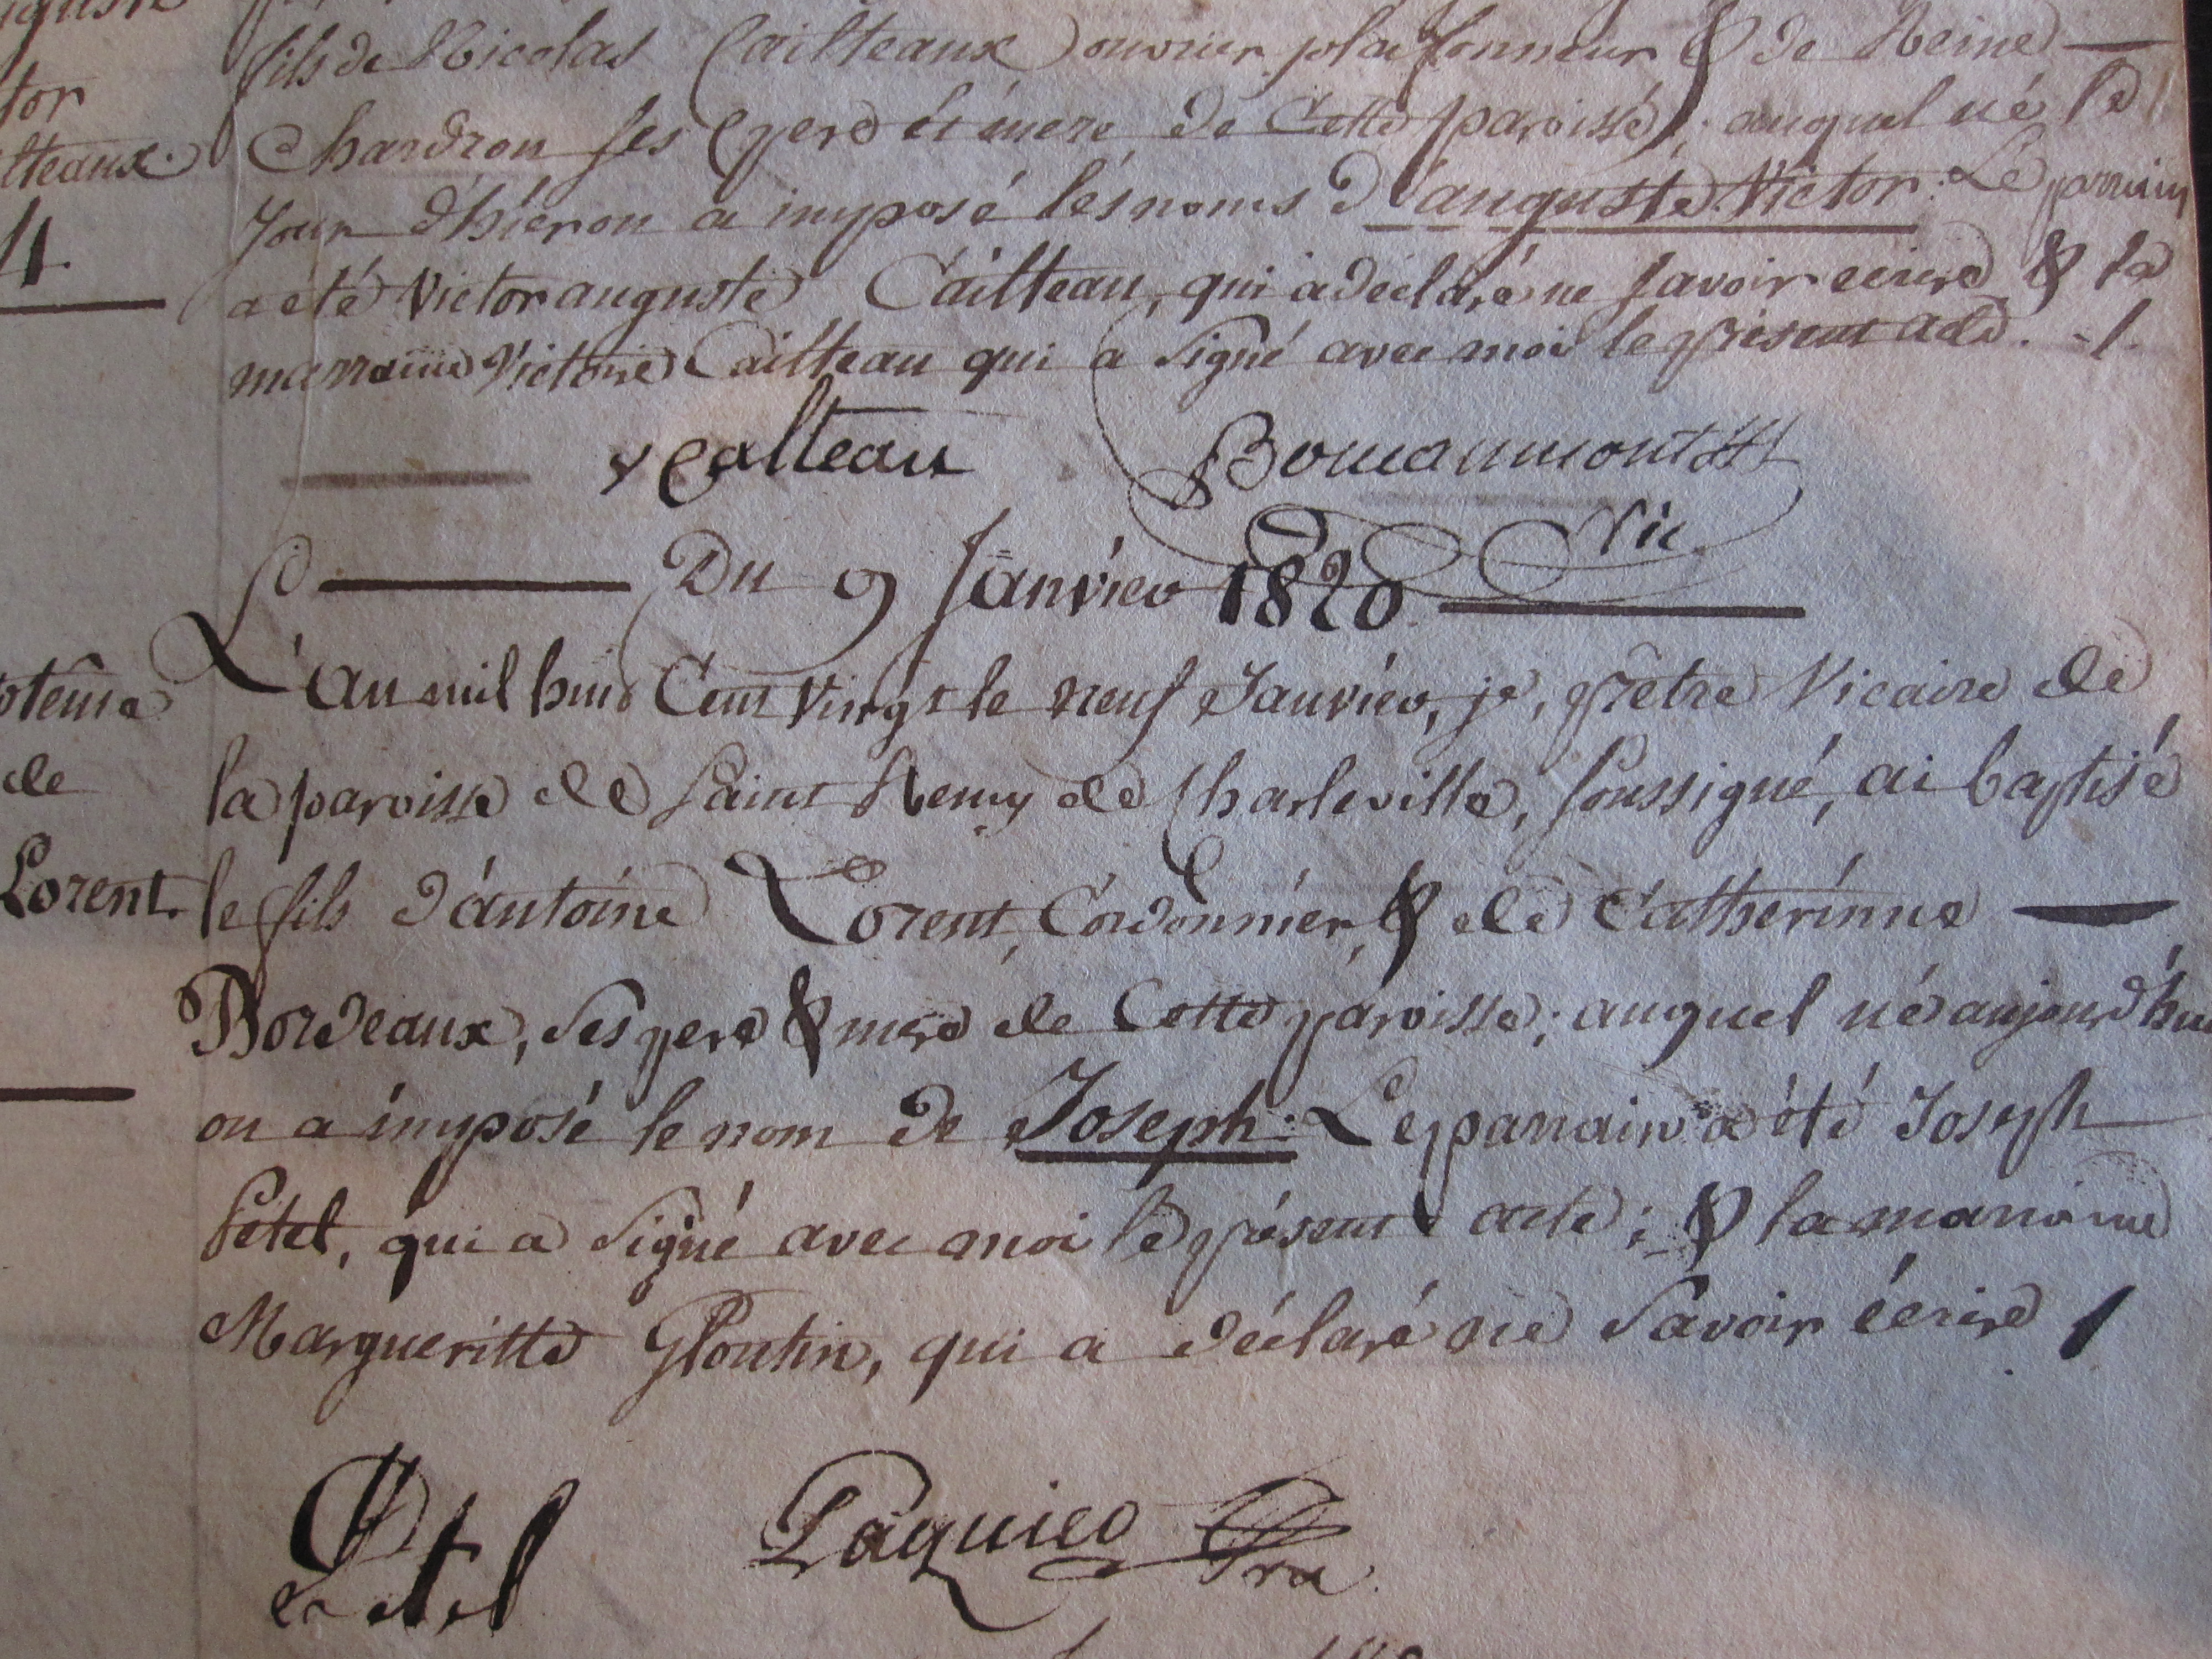 fils de Nicolas Cailteaux ouvrier plafonneur & de Reine
tor
Chardron ses pere et mere de cette paroisse; auquel né le
lteaux.
jour d'hier on a imposé les noms d'auguste Victor: Le parrain
4.
a eté Victor auguste Cailteau, qui a déclaré ne savoir ecrire & la
marraine Victoire Cailteau qui a signé avec moi le présent acte. -/.
v Calteau
Vic
Du 9 Janvier 1820
L'an mil huit Cent Vingt le neuf Janvier, je, prêtre Vicaire de
la paroisse de Saint Remy de Charleville, soussigné, ai baptisé
de
le fils d'antoine Lorent, Cordonnier, & de Catherinne
Lorent.
Bordeaux, ses pere & mere de Cette paroisse; auquel né aujourd'hui
on a imposé le nom de Joseph: Le parrain a été Joseph
Petel, qui a signé avec moi le présent acte; & la marraine
Margueritte Ploutin, qui a déclaré ne savoir écrire /
Petel
Paquier